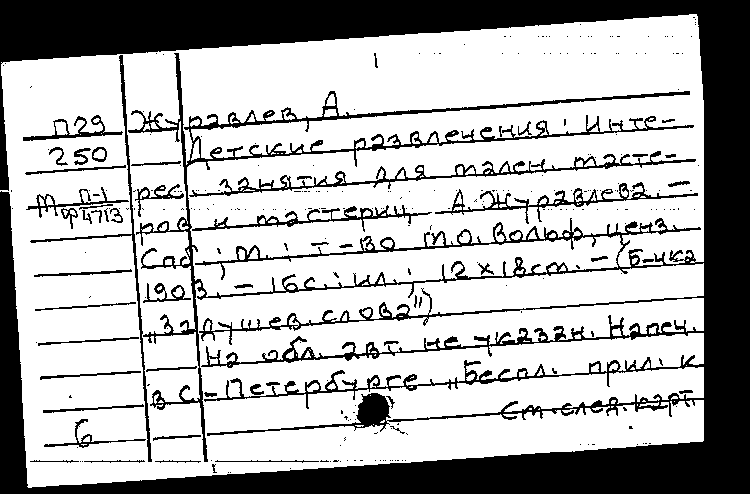 П29 Журавлев, А.
250 Детские развлечения: Инте-
М П-1/Ф4713 рес. занятия для мален. масте-
ров и мастериц А. Журавлева. –
Спб.; М.: Т-во М.О. Вольф, ценз.
1903. – 16с.: ил.; 12×18см. – (Б-чка
„Задушев. слова").
На обл. авт. не указан. Напеч.
в С.-Петербурге. „Беспл. прил. к
6 См. след. карт.